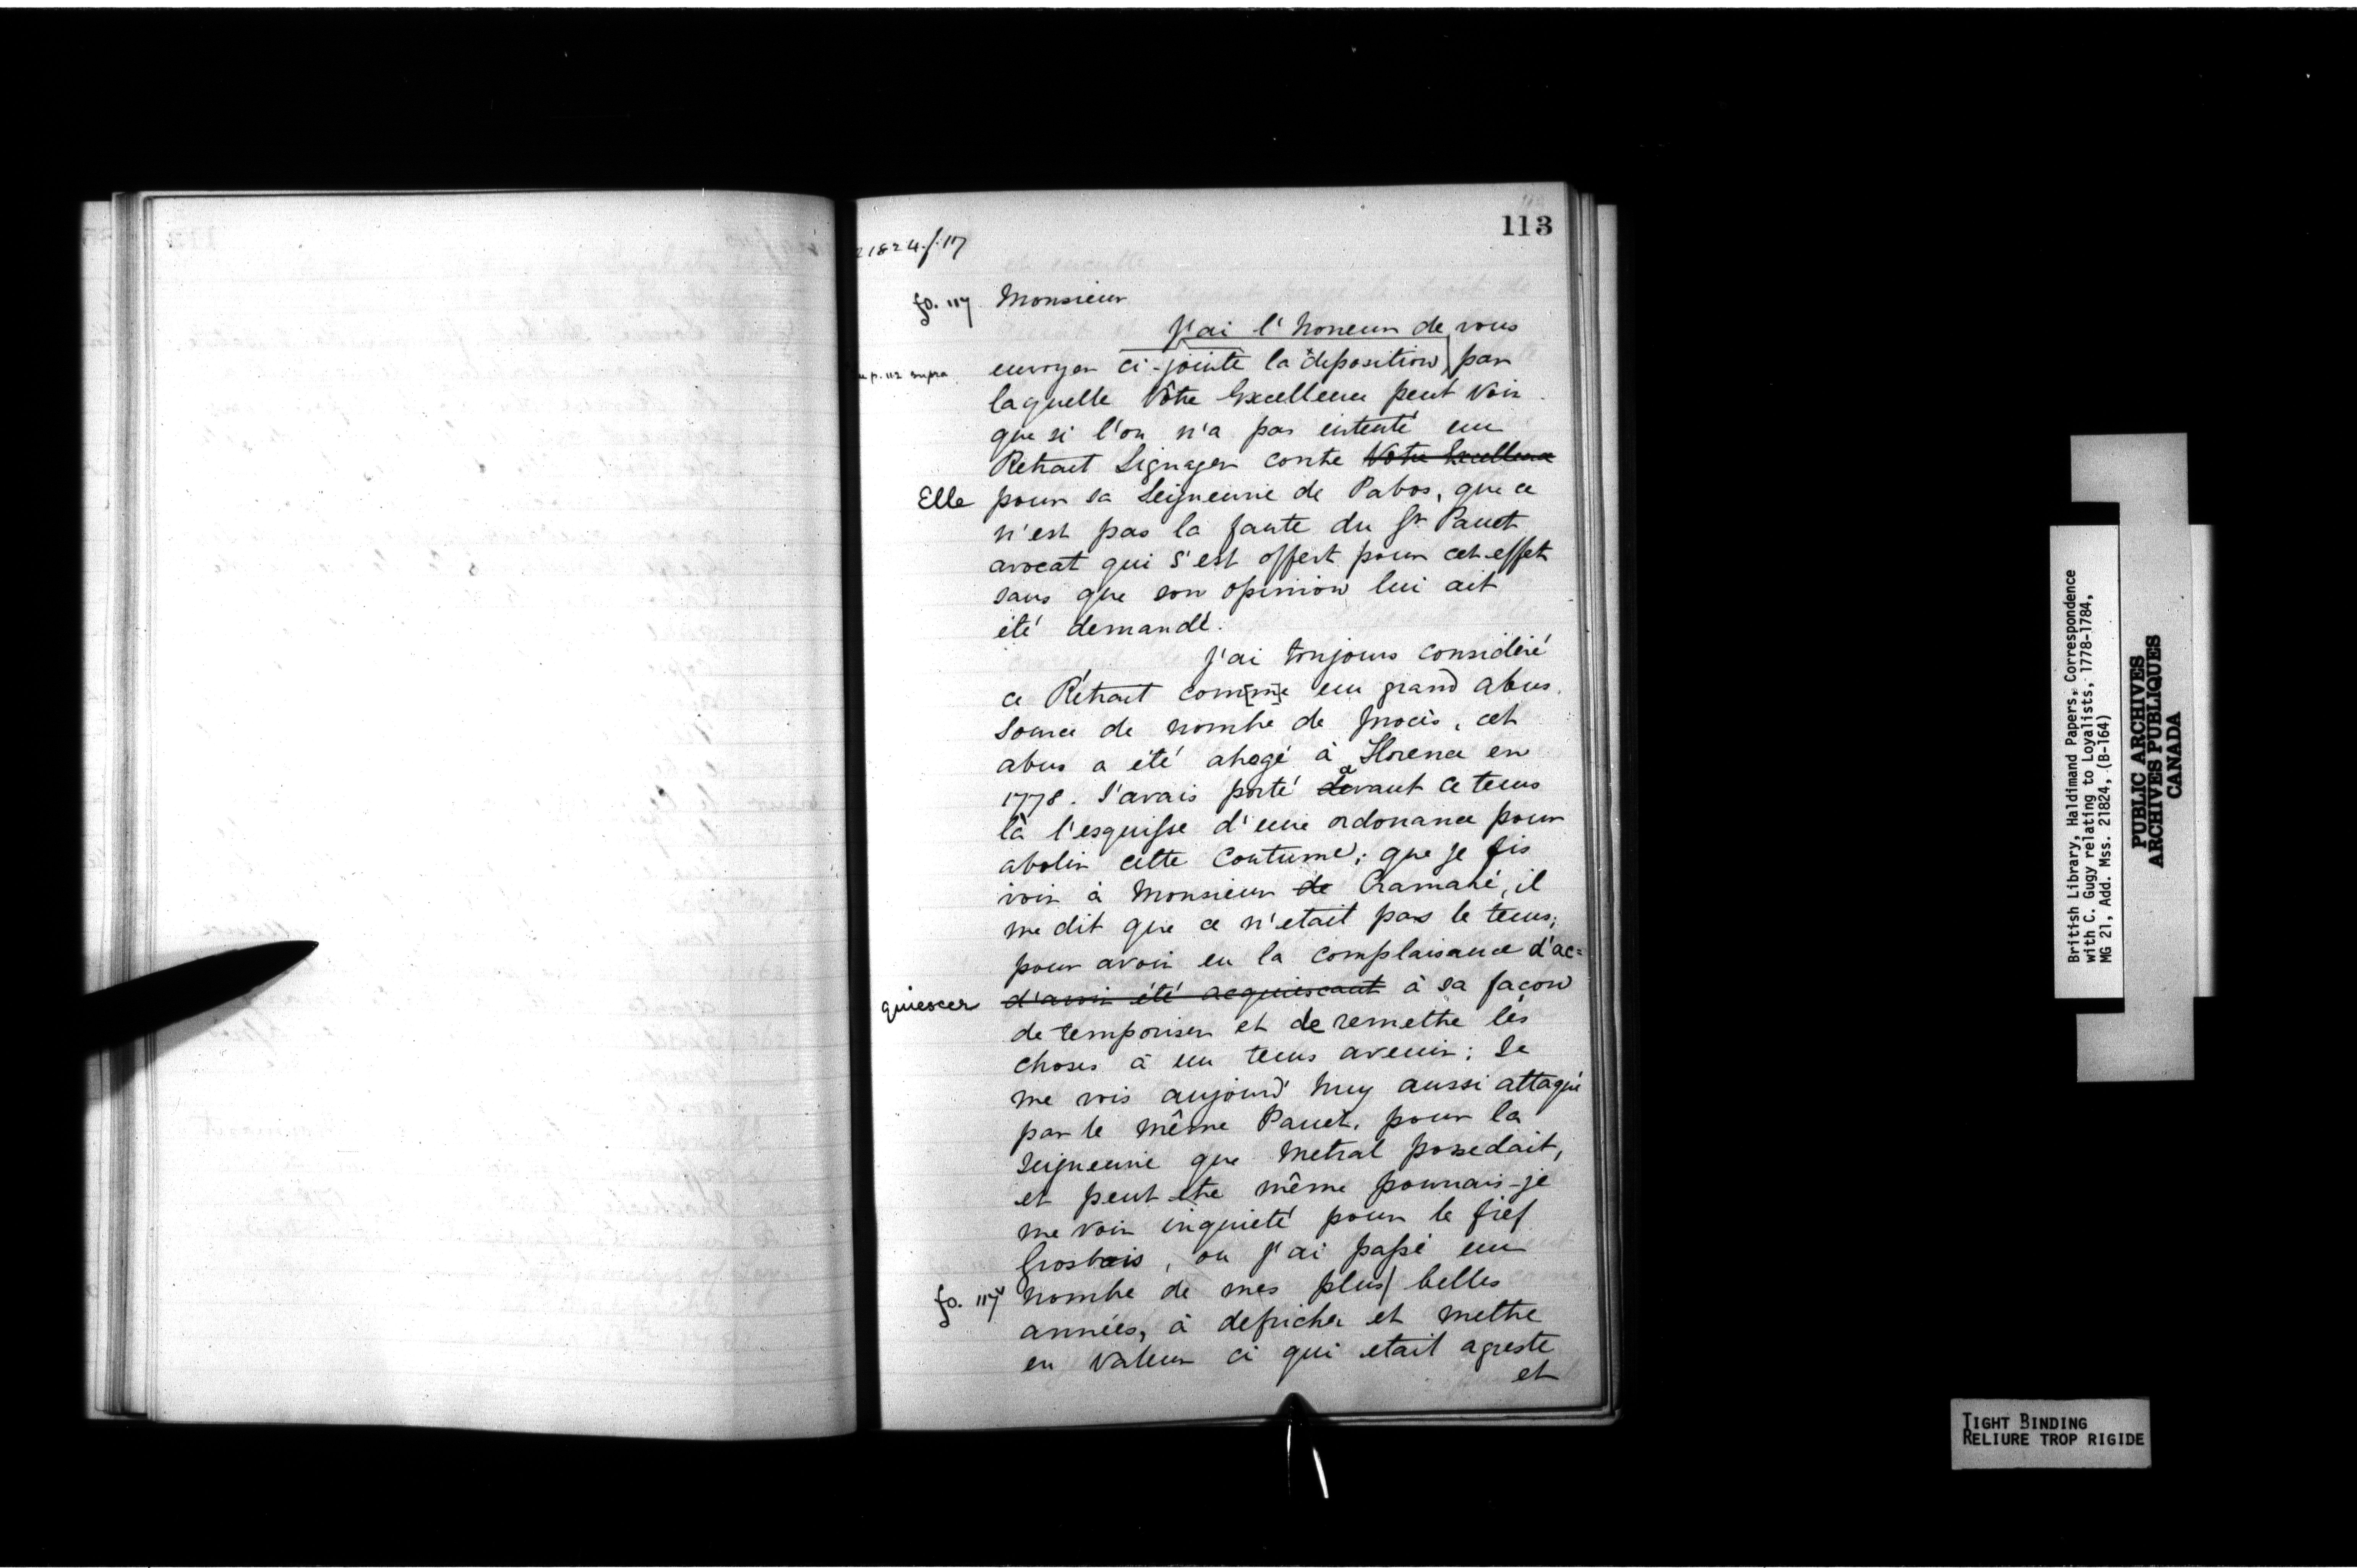 113
21824.f.117
fo. 117 Monsieur
J'ai l'honeur de vous
envoyer ci-jointe la deposition par
p. 112 supra
laquelle Vôtre Excellence peut voir
que si l'on n'a pas intenté un
Retrait Lignager contre Votre Excellence
Elle pour sa Seigneurie de Pabos, que ce
n'est pas la faute du Sr Panet
avocat qui s'est offert pour cet effet
sans que son opinion lui ait
été demandé.
J'ai toujours considéré
ce Rétrait comme un grand abus.
source de nombre de procès, cet
abus a été abogé à Florence en
1778. J'avais porté avant ce tems
là l'esquisse d'une ordonance pour
abolir cette Coutume; que je fis
voir à Monsieur de Cramahé, il
me dit que ce n'etait pas le tems;
pour avoir eu la complaisance d'ac=
quiescer d'avoir été acquiescant à sa façon
de temporiser et de remettre les
choses à un tems avenir; Je
me vois aujourd'huy aussi attaqué
par le même Panet, pour la
Seigneurie que Metral possedait,
et peut etre même pourrais-je
me voir inquieté pour le fief
Grosbois, ou j'ai passé un
fo. 117v nombre de mes plus| belles
années, à defricher et mettre
en valeur ci qui etait agreste
et
British Library, Haldimand Papers, Correspondence
with C. Gugy relating to Loyalists, 1778-1784,
MG 21, Add. Mss. 21824, (B-164)
PUBLIC ARCHIVES
ARCHIVES PUBLIQUES
CANADA
TIGHT BINDING
RELIURE TROP RIGIDE